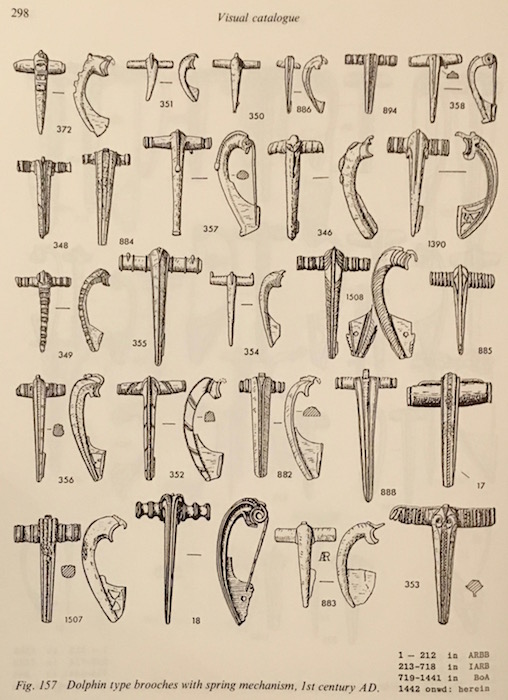 298
Visual catalogue
372
351
350
886
894
358
348
884
357
346
1390
349
355
354
1508
885
356
352
882
888
17
1507
18
AR
883
353
1 — 212 in ARBB
213-718 in IARB
719-1441 in BoA
1442 onwd: herein
Fig. 157 Dolphin type brooches with spring mechanism, 1st century AD.